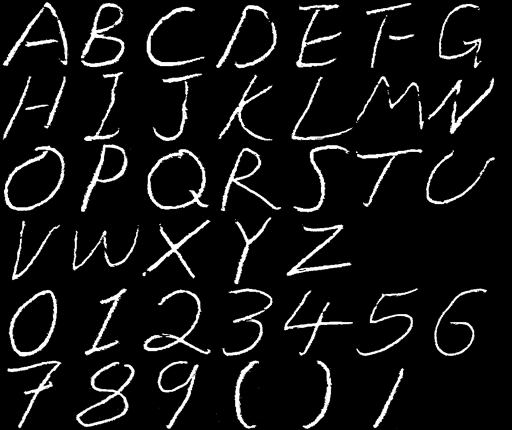 A B C D E F G
H I J K L M N
O P Q R S T U
V W X Y Z
0 1 2 3 4 5 6
7 8 9 ( ) /